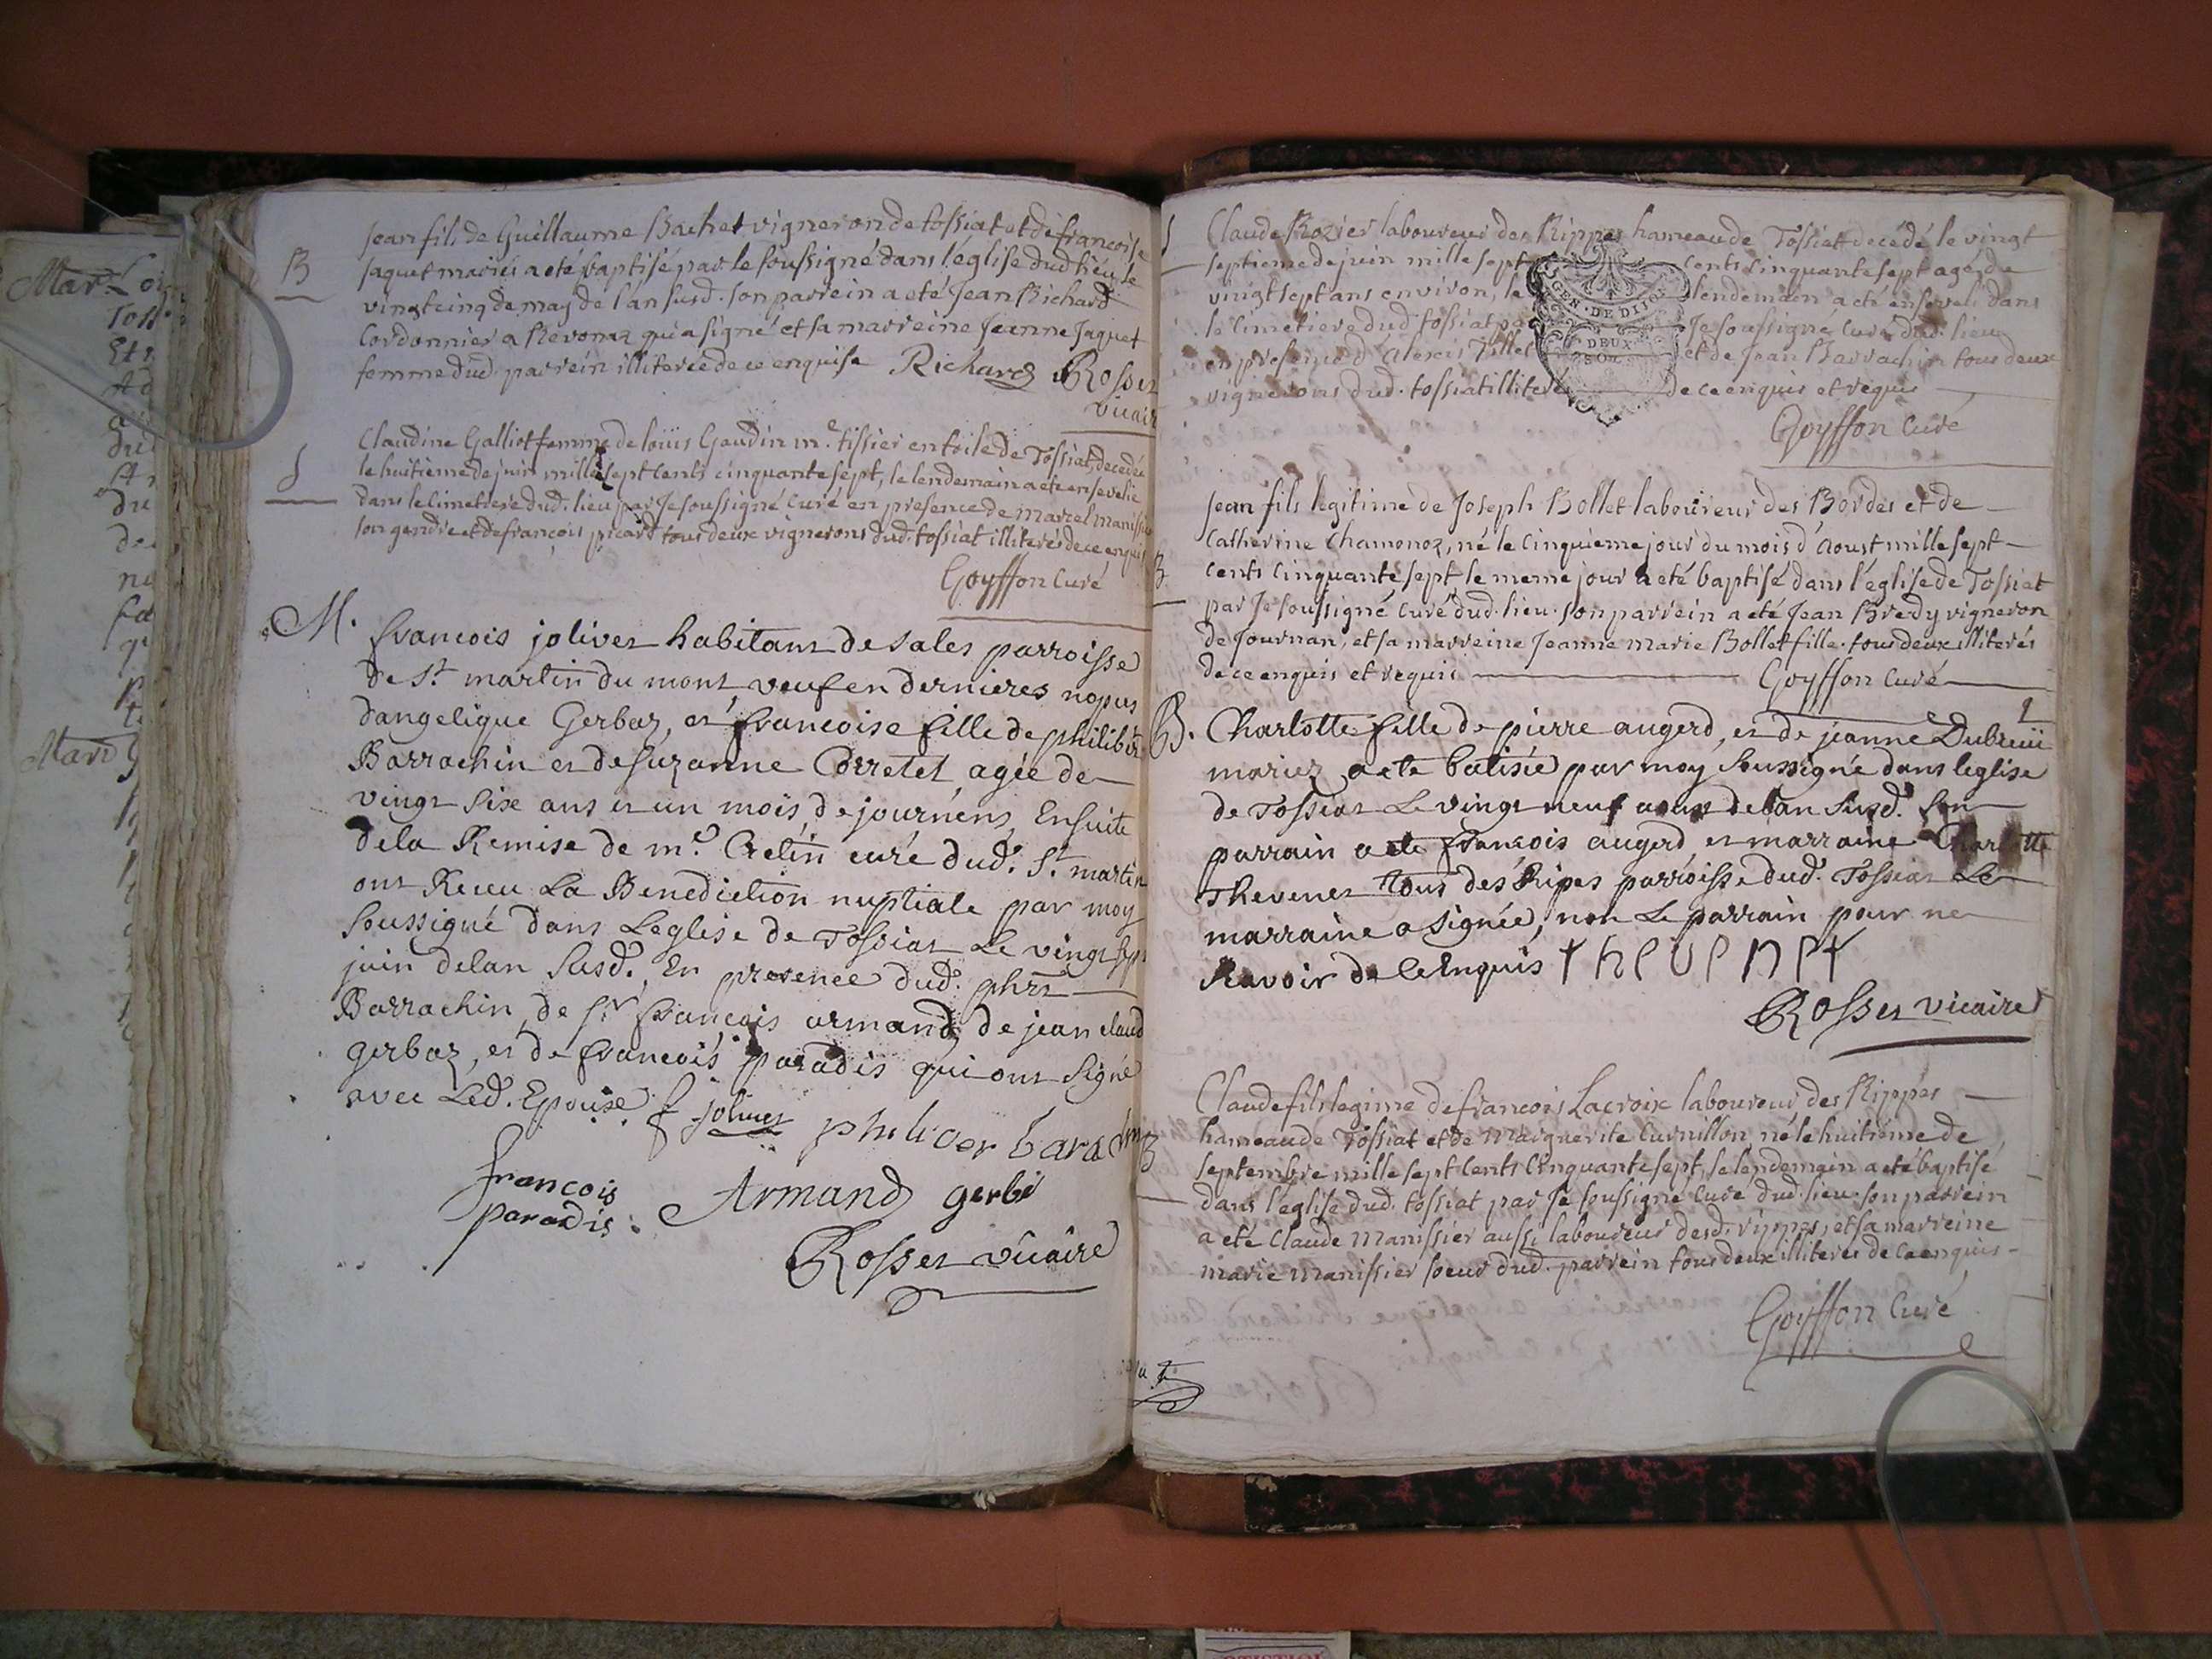 B
Jean fils de Guillaume Bachet vigneron de tossiat et de francoise
Jaquet mariés a eté baptisé par le soussigné dans l'église dud lieu le
vingtcinq de may de l'an susd. son parrein a eté Jean Richard
Cordonnier a Revonaz qui a signé et sa marreine Jeanne Jaquet
femme dud. parrein illiterée de ce enquise Richard Rosset
vicaire
S
Claudine Galliot femme de louis Gaudin m.e tissier en toile de Tossiat, decedée
le huitieme de juin mille sept cents cinquante sept, le lendemain a eté ensevelie
dans le Cimetiere dud. lieu par Je soussigné Curé en presence de marcel manissier
son gendre et de françois picard tous deux vignerons dud. tossiat illiterés de ce enquis
Goyffon Curé
M.
francois jolivet habitant de sales parroisse
de S.t martin du mont, veuf en dernieres nopces
dangelique Gerbaz, et francoise fille de philibert
Barrachin et de suzanne Corretet agée de
vingt six ans et un mois, de journens, Ensuite
dela Remise de m.e Cretin curé dud. S.t martin
ont Receu La Benediction nuptiale par moy
soussigné dans Leglise de Tossiat Le vingt sept
juin delan susd. En presence dud. phrt
Barrachin, de S.r francois armand, de jean claude
gerbaz, et de francois paradis qui ont signé
avec Led. Epouse. f jolivet philiber barachin
francois
paradis. Armand gerbé
Rosset vicaire
S
Claude Rozier laboureur des Rippes hameau de Tossiat decédé le vingt
septieme de juin mille sept cents cinquante sept agé de
vingt sept ans environ, le lendemain a eté enseveli dans
le Cimetiere dud. tossiat par Je soussigné Curé dud. lieu
en presence d'Alexis Tillet et de Jean Barrachin tous deux
vignerons dud. tossiat illiterés de ce enquis et requis
GEN. DE DIJON
DEUX
SOLS
Goyffon Curé
B
Jean fils legitime de Joseph Bollet laboureur des Bordes et de
Catherine Chamonoz, né le Cinquieme jour du mois d'Aoust mille sept
cents Cinquante sept le meme jour a eté baptisé dans l'église de Tossiat
par Je soussigné Curé dud. lieu. son parrein a eté Jean Bredy vigneron
de Journan, et sa marreine Jeanne marie Bollet fille. tous deux illiterés
de ce enquis et requis Goyffon Curé
B.
Charlotte fille de pierre augerd, et de jeanne Dubreüil
mariez a ete batisée par moy soussigné dans leglise
de Tossiat Le vingt neuf aout delan susd. son
parrain a ete francois augerd et marraine Charlotte
Thevenet tous des Ripes parroisse dud. Tossiat La
marraine a signée, non Le parrain pour ne
scavoir de ce Enquis thevenet
Rosset vicaire
B
Claude fils legime de francois Lacroix laboureur des Rippes
hameau de Tossiat et de Marguerite Curnillon né le huitieme de
septembre mille sept cents Cinquante sept, le lendemain a eté baptisé
dans l'église dud. tossiat par Je soussigné Curé dud. lieu. son parrein
a eté Claude Manissier aussi laboureur desd. rippes, et sa marreine
marie manissier soeur dud. parrein tous deux illiterés de ce enquis
Goyffon Curé